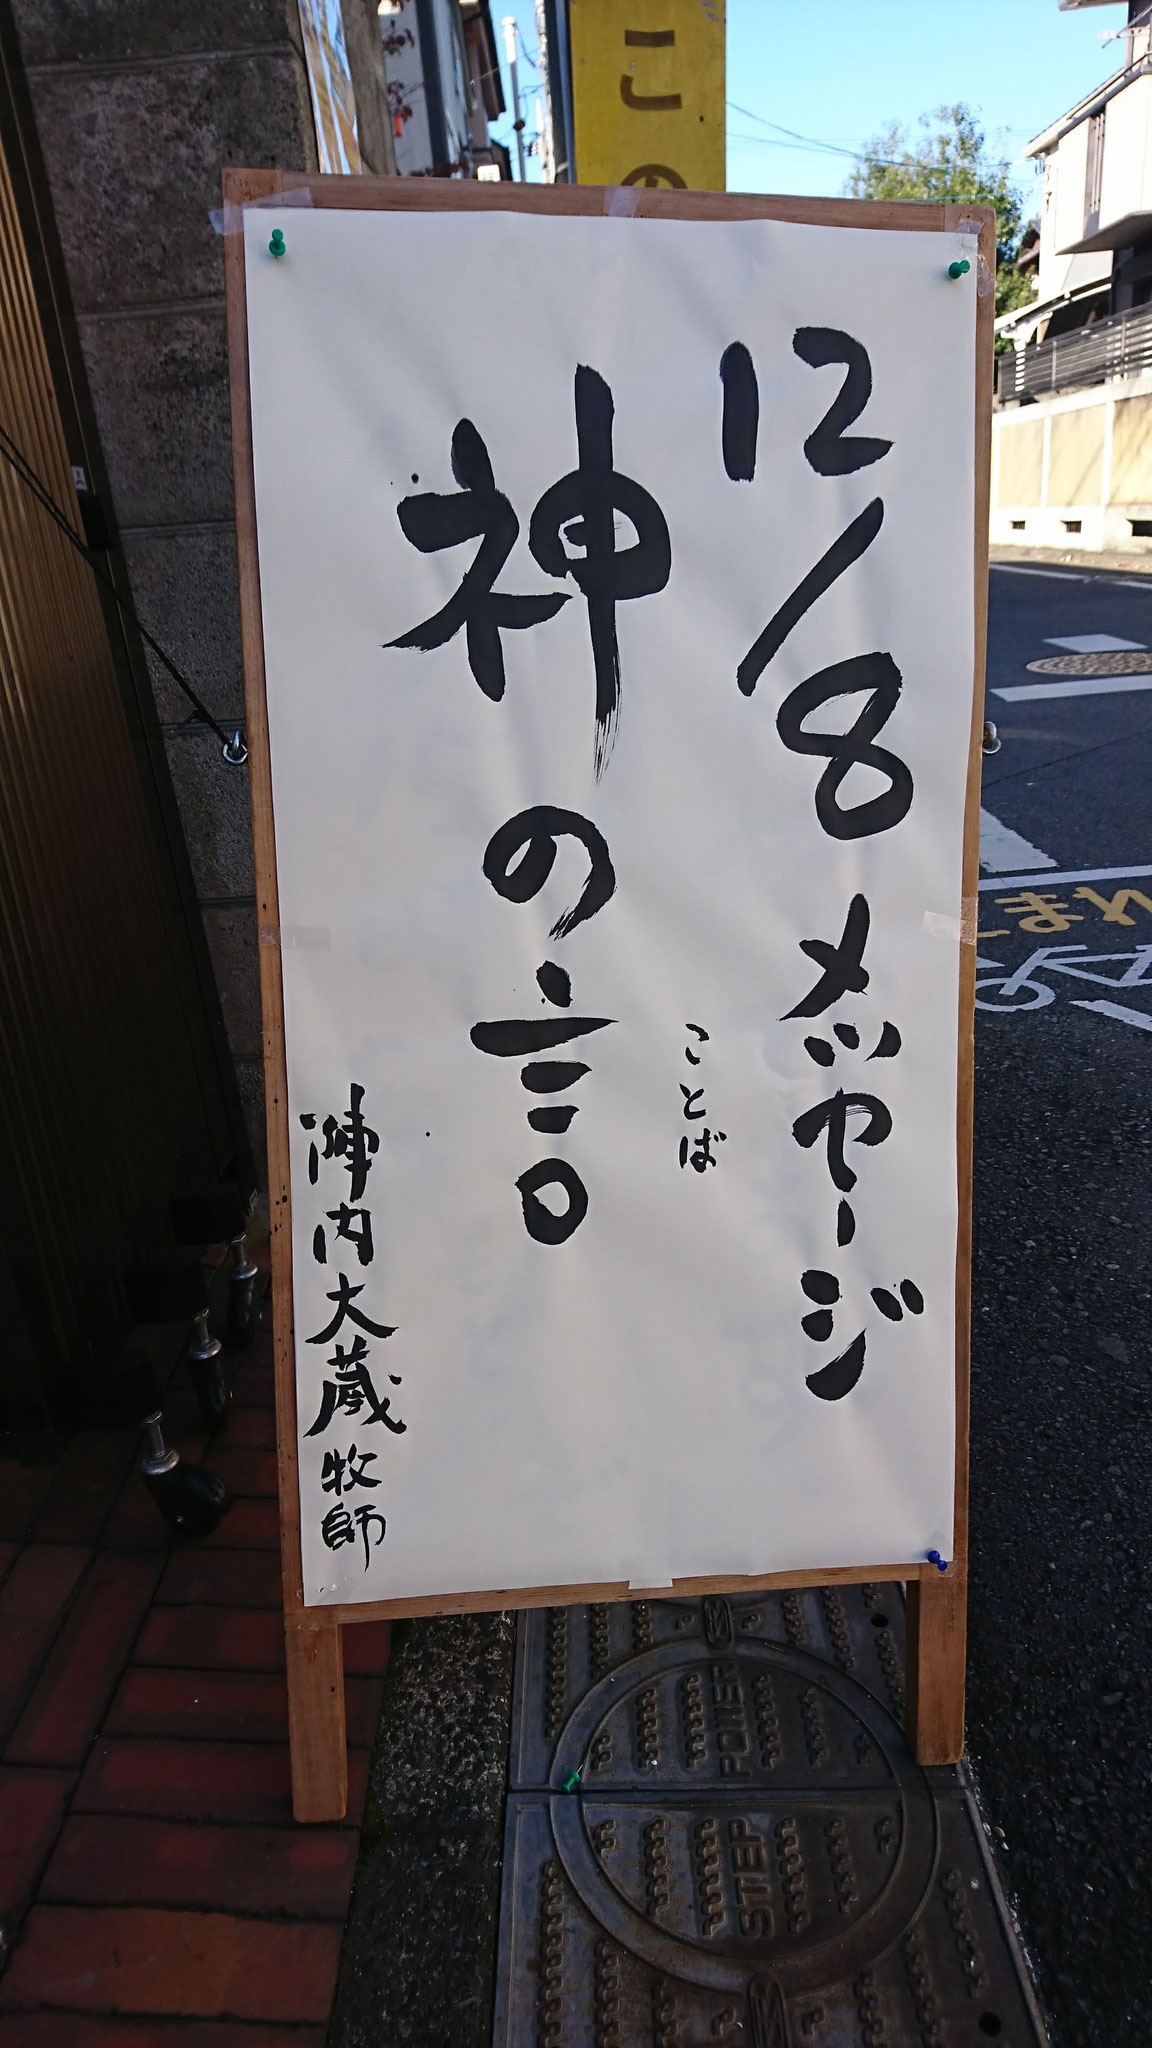 12/8 メッセージ
ことば
神の言
陣内大蔵牧師
この
とまれ
POWER
STEP